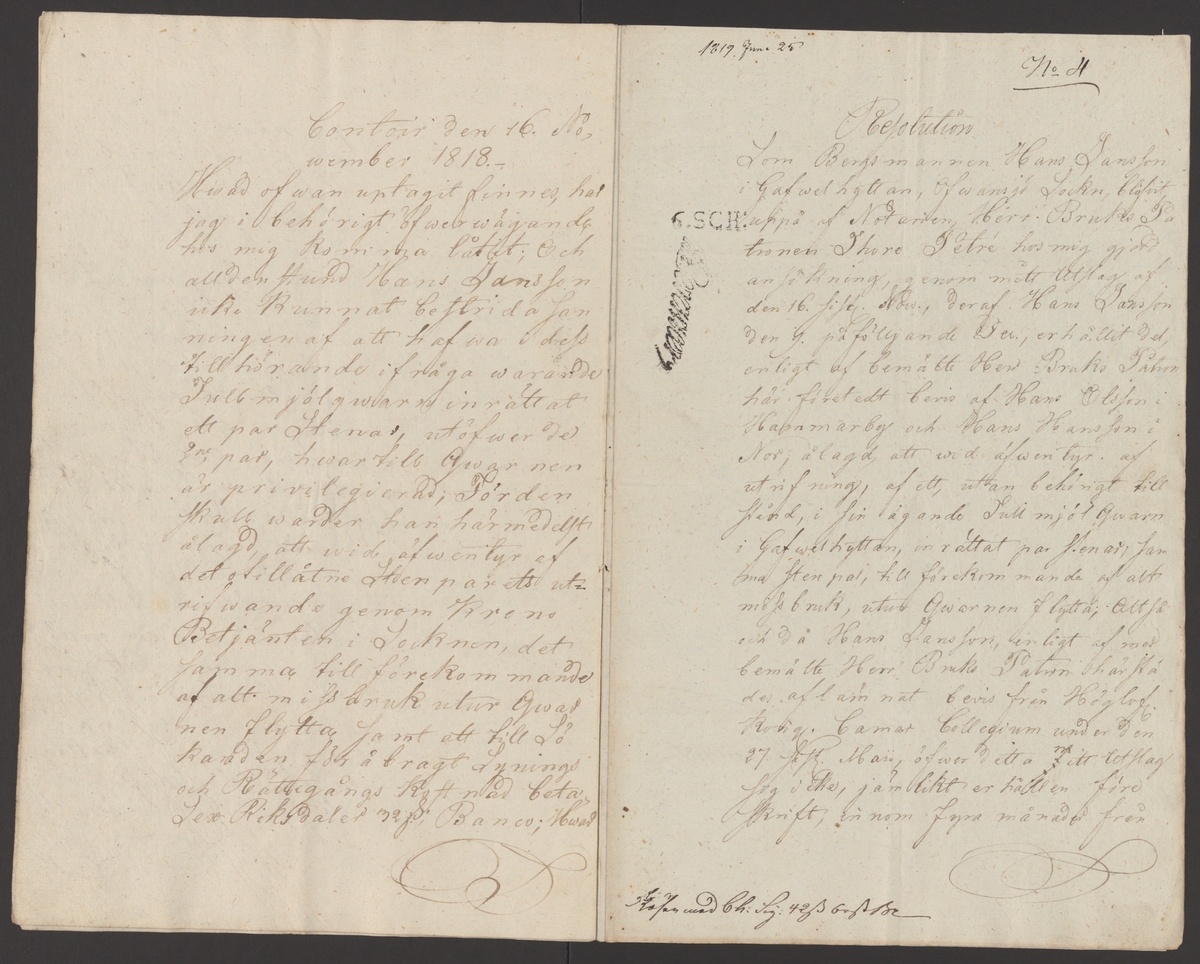 Contoir den 16. No,
wember 1818.-
Hwad ofwan uptagit finnes, har
jag i behörigt öfwerwägande
hos mig komma låtit; Och
alldenstund Hans Jansson
icke kunnat bestrida san
ningen af att hafwa i dess
tillhörande ifråga warande
Tullmjölqwarn inrättat
ett par Stenar, utöfwer de
2ne par, hwartill Qwarnen
är privilegierad; Ty och den
skull warder han härmedelst
ålagd, att wid äfwentyr af
det otillåtne Stenparets ut=
rifwande genom Krono
Betjänten i Socknen, det
samma till förekommande
af allt missbruk utur Qwar
nen flytta, samt att till Sö
kanden för åbragt Synings
och Rättegångs kostnad beta,
Sex Riksdaler 32 ß, Banco; Hwad
1819. Juni 25
No 4
Resolution
Som Bergsmannen Hans Jansson
i Gafwelhyttan, Ofwansjö Sockn, blifwit
6. SCH. uppå af Notarien, Herr Bruks Pa
tronen Thore Petré hos mig gjord
ansökning, genom mitt Utslag af
den 16. sistl. Nov., deraf Hans Jansson
den 9. påföljande Dec., erhållit del,
enligt af bemälte Herr Bruks Patron
här företedt bevis af Hans Olsson i
Hammarby och Hans Hansson i
Nor, ålagd att wid äfwentyr af
utrifning, af ett, utan behörigt till
stånd, i sin ägande Tullmjöl Qwarn
i Gafwelhyttan, inrättat par stenar, sam
ma stenpar, till förekommande af allt
missbruk, utur Qwarnen flytta; Alltså
och då Hans Jansson, enligt af med
bemälte Herr Bruks Patron härstä
des aflämnat bevis från Höglof.
Kongl. Camar Collegium under den
27. sistl. Maii, öfwer detta mitt Utslag
sig icke, jämlikt erhållen före
skrift, innom fyra månader från
Lösen med Ch: Sig: 42 ß 6 rst Bco